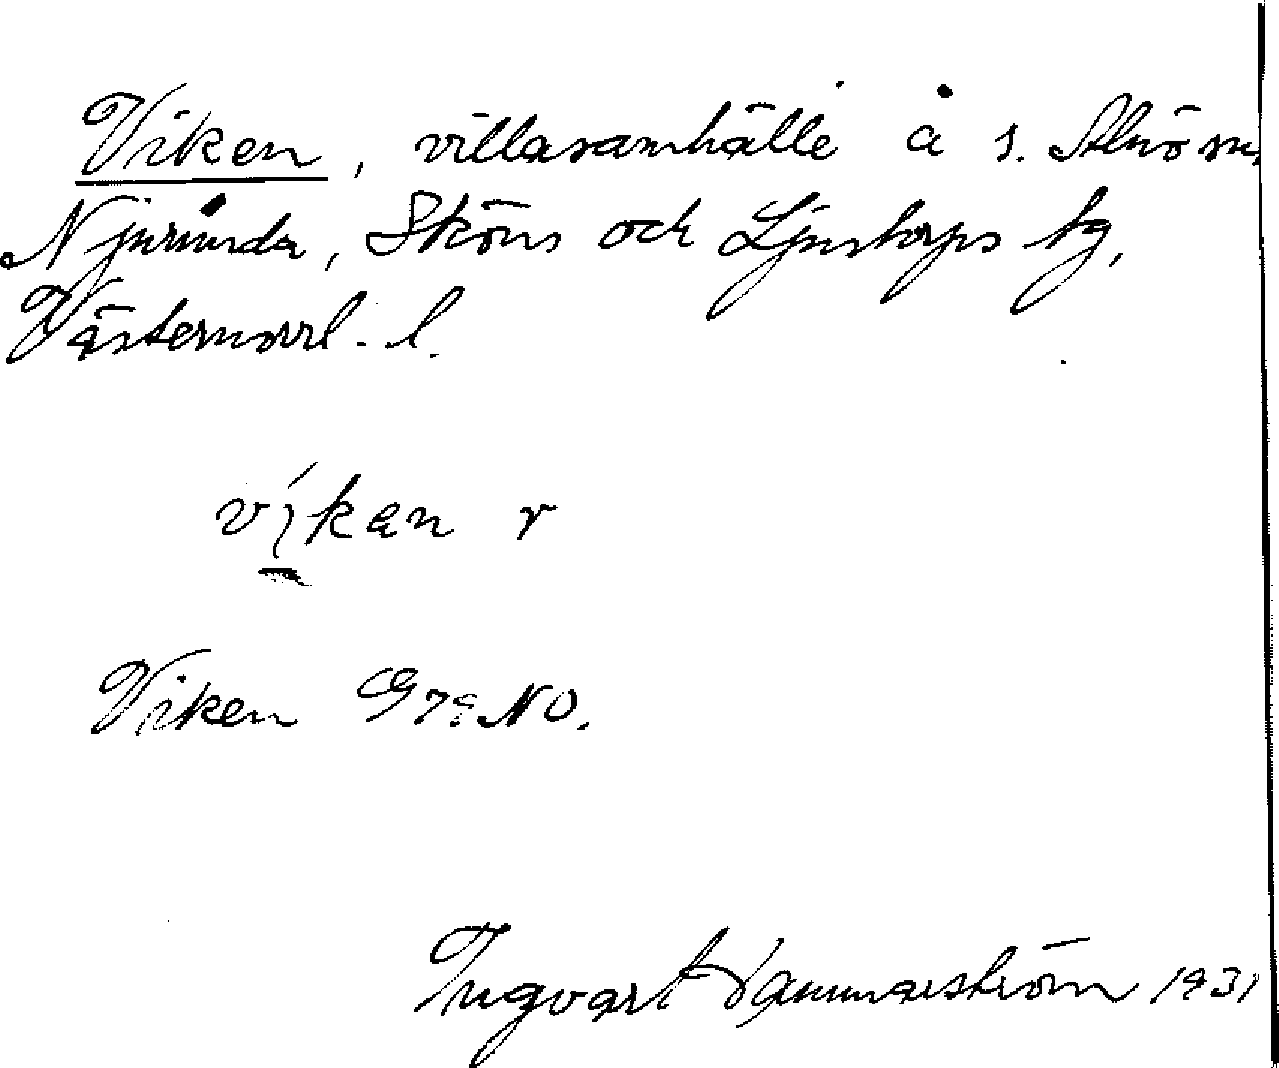 Viken, villasamhälle å s. Alnö sn,
Njurunda, Sköns och Ljustorps tg,
Västernorrl. l.
víkan r
Viken G79 NO.
Ingvart Hammarström 1931